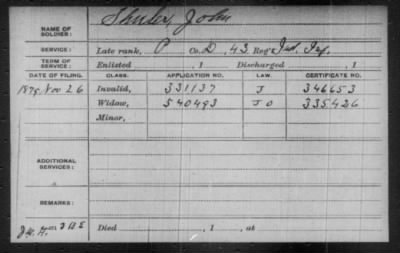 NAME OF SOLDIER: Shuler, John
SERVICE: Late rank, P Co. D, 43 Reg't Ind. Inf.
TERM OF SERVICE: Enlisted , 1 Discharged , 1
DATE OF FILING. CLASS. APPLICATION NO. LAW. CERTIFICATE NO.
1879, Nov 26 Invalid, 331137 J 346653
Widow, 540493 J O 335426
Minor,
ADDITIONAL SERVICES:
REMARKS:
Died , 1 , at